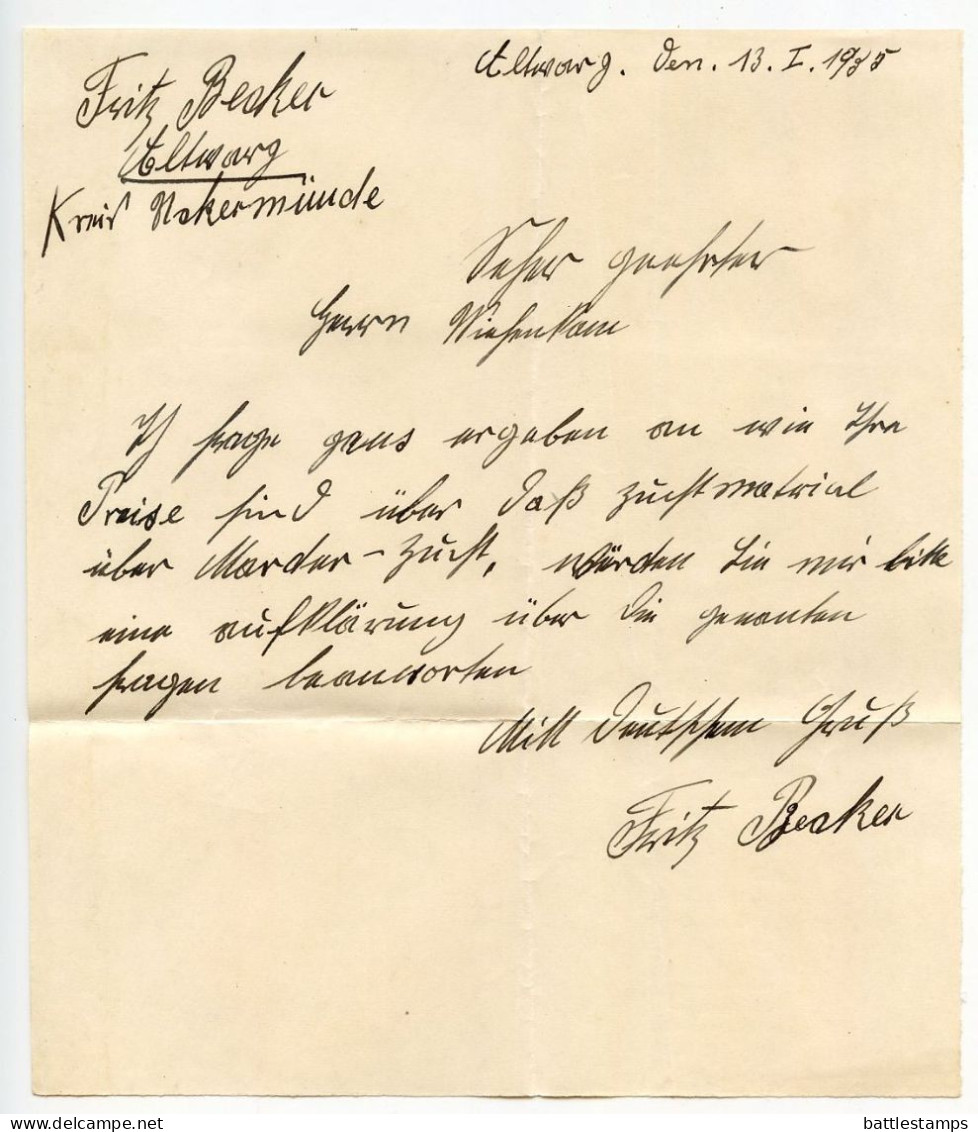 Fritz Becker
Altwarp
Kreis Uckermünde
Altwarp. Den. 13. I. 1935
Seher geehrter
Herrn Wiesenkam
Ich frage gans ergeben an wie Ihre
Preise sind über daß zuchtmatrial
über Marder-Zucht, würden Sie mir bitte
eine aufklärung über die genanten
fragen beanworten
Mitt Deutschem Gruß
Fritz Becker
delcampe.net
battlestamps